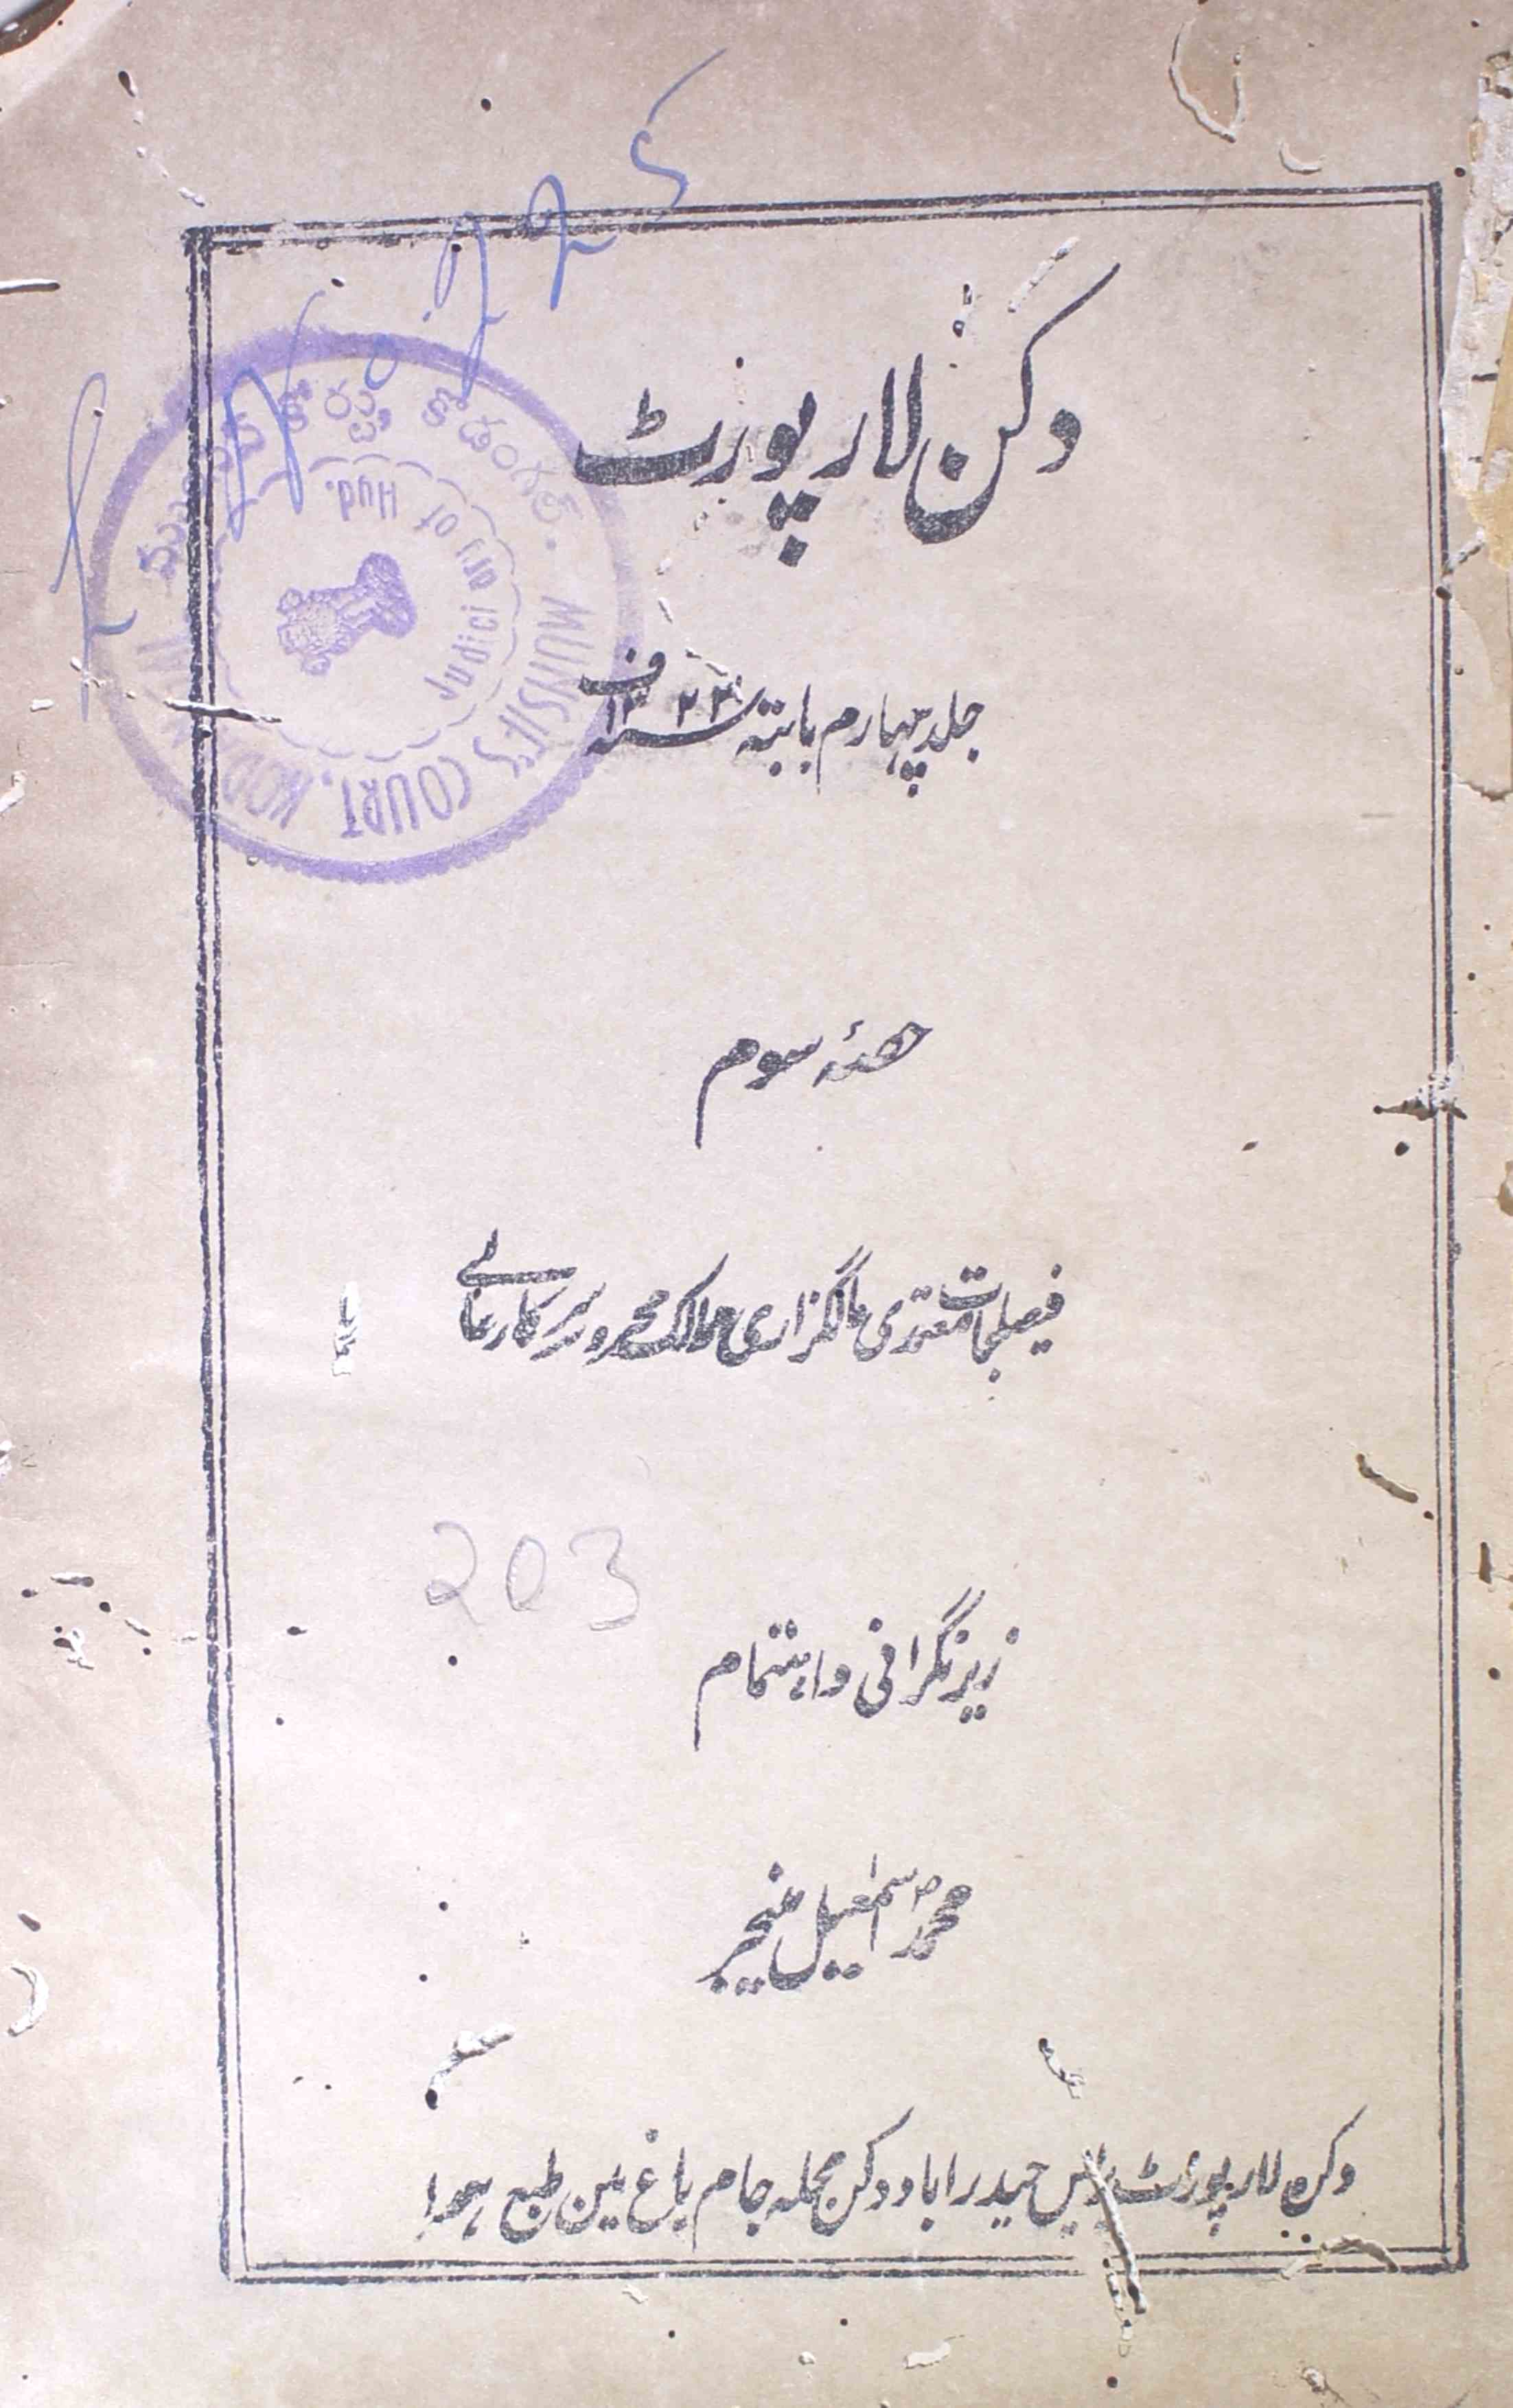 دکن لا رپورٹ
جلد چہارم بابتہ سنہ ۱۳۲۲ ف
حصۂ سوم
فیصلجات معتمدی مالگزاری ممالک محروسہ سرکار عالی
203
زیر نگرانی و اہتمام
محمد اسمٰعیل منیجر
دکن لا رپورٹ پریس حیدراباد دکن محلہ جام باغ مین طبع ہوا
MUNSIF'S COURT
Judiciary of Hyd.